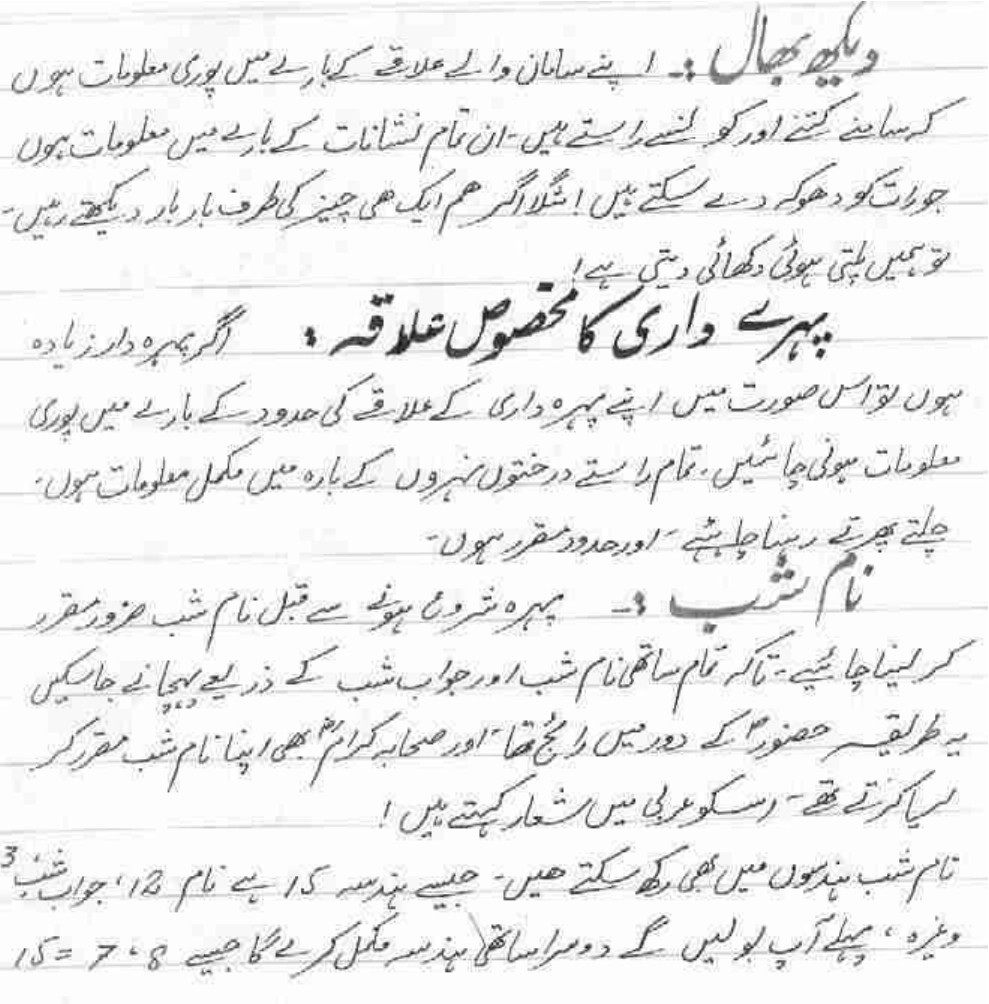 دیکھ بھال :۔ اپنے سامان والے علاقے کے بارے میں پوری معلومات ہوں
کہ سامنے کتنے اور کونسے راستے ہیں۔ ان تمام نشانات کے بارے میں معلومات ہوں
جو رات کو دھوکہ دے سکتے ہیں! مثلاً اگر ھم ایک ھی چیز کی طرف بار بار دیکھتے رہیں۔
تو ہمیں ہلتی ہوئی دکھائی دیتی ہے!
پہرے داری کا مخصوص علاقہ : اگر پہرہ دار زیادہ
ہوں تو اس صورت میں اپنے پہرہ داری کے علاقے کی حدود کے بارے میں پوری
معلومات ہونی چائیں۔ تمام راستے درختوں نہروں کے بارہ میں مکمل معلومات ہوں۔
چلتے پھرتے رہنا چاہئے۔ اور حدود مقرر ہوں۔
نام شب :۔ پہرہ شروع ہونے سے قبل نام شب ضرور مقرر
کر لینا چائیے۔ تاکہ تمام ساتھی نام شب اور جواب شب کے ذریعے پہچانے جا سکیں
یہ طریقہ حضورؐ کے دور میں رائج تھا۔ اور صحابہ کرامؓ بھی اپنا نام شب مقرر کر
لیا کرتے تھے۔ اسکو عربی میں شعار کہتے ہیں!
نام شب ہندسوں میں بھی رکھ سکتے ھیں۔ جیسے ہندسہ 15 ہے نام 12، جواب شب 3
وغیرہ، پہلے آپ بولیں گے دوسرا ساتھی ہندسہ مکمل کرے گا جیسے 8، 7 = 15